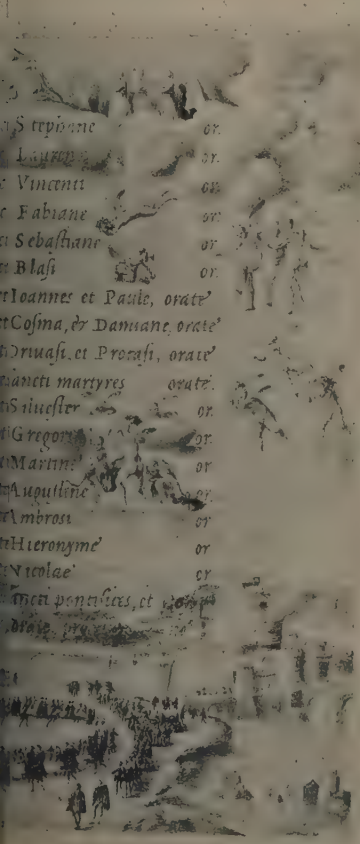 Stephane or.
Laurenti or.
Vincenti or.
Fabiane or.
Sebastiane or.
Blasi or.
Ioannes et Paule, orate
Cosma, & Damiane, orate
et Protasi, orate
sancti martyres orate.
Siluester or.
Gregori or.
Martine or.
Augustine or.
Ambrosi or
Hieronyme or
Nicolae or
sancti pontifices, et
orate, pro